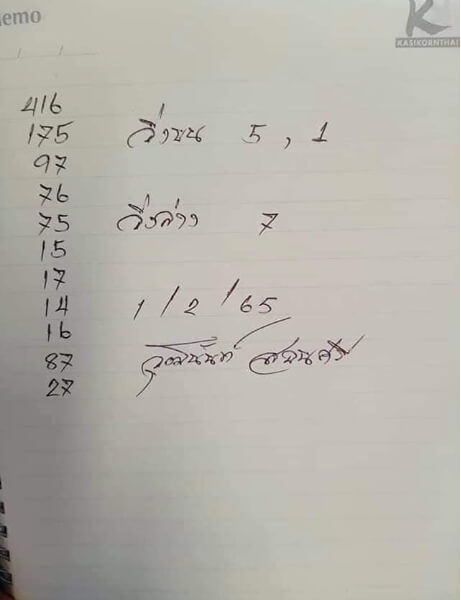 emo
K
KASIKORNTHAI
416
175 วิ่งบน 5 , 1
97
76
75 วิ่งล่าง 7
15
17
14 1 / 2 / 65
16
87
27